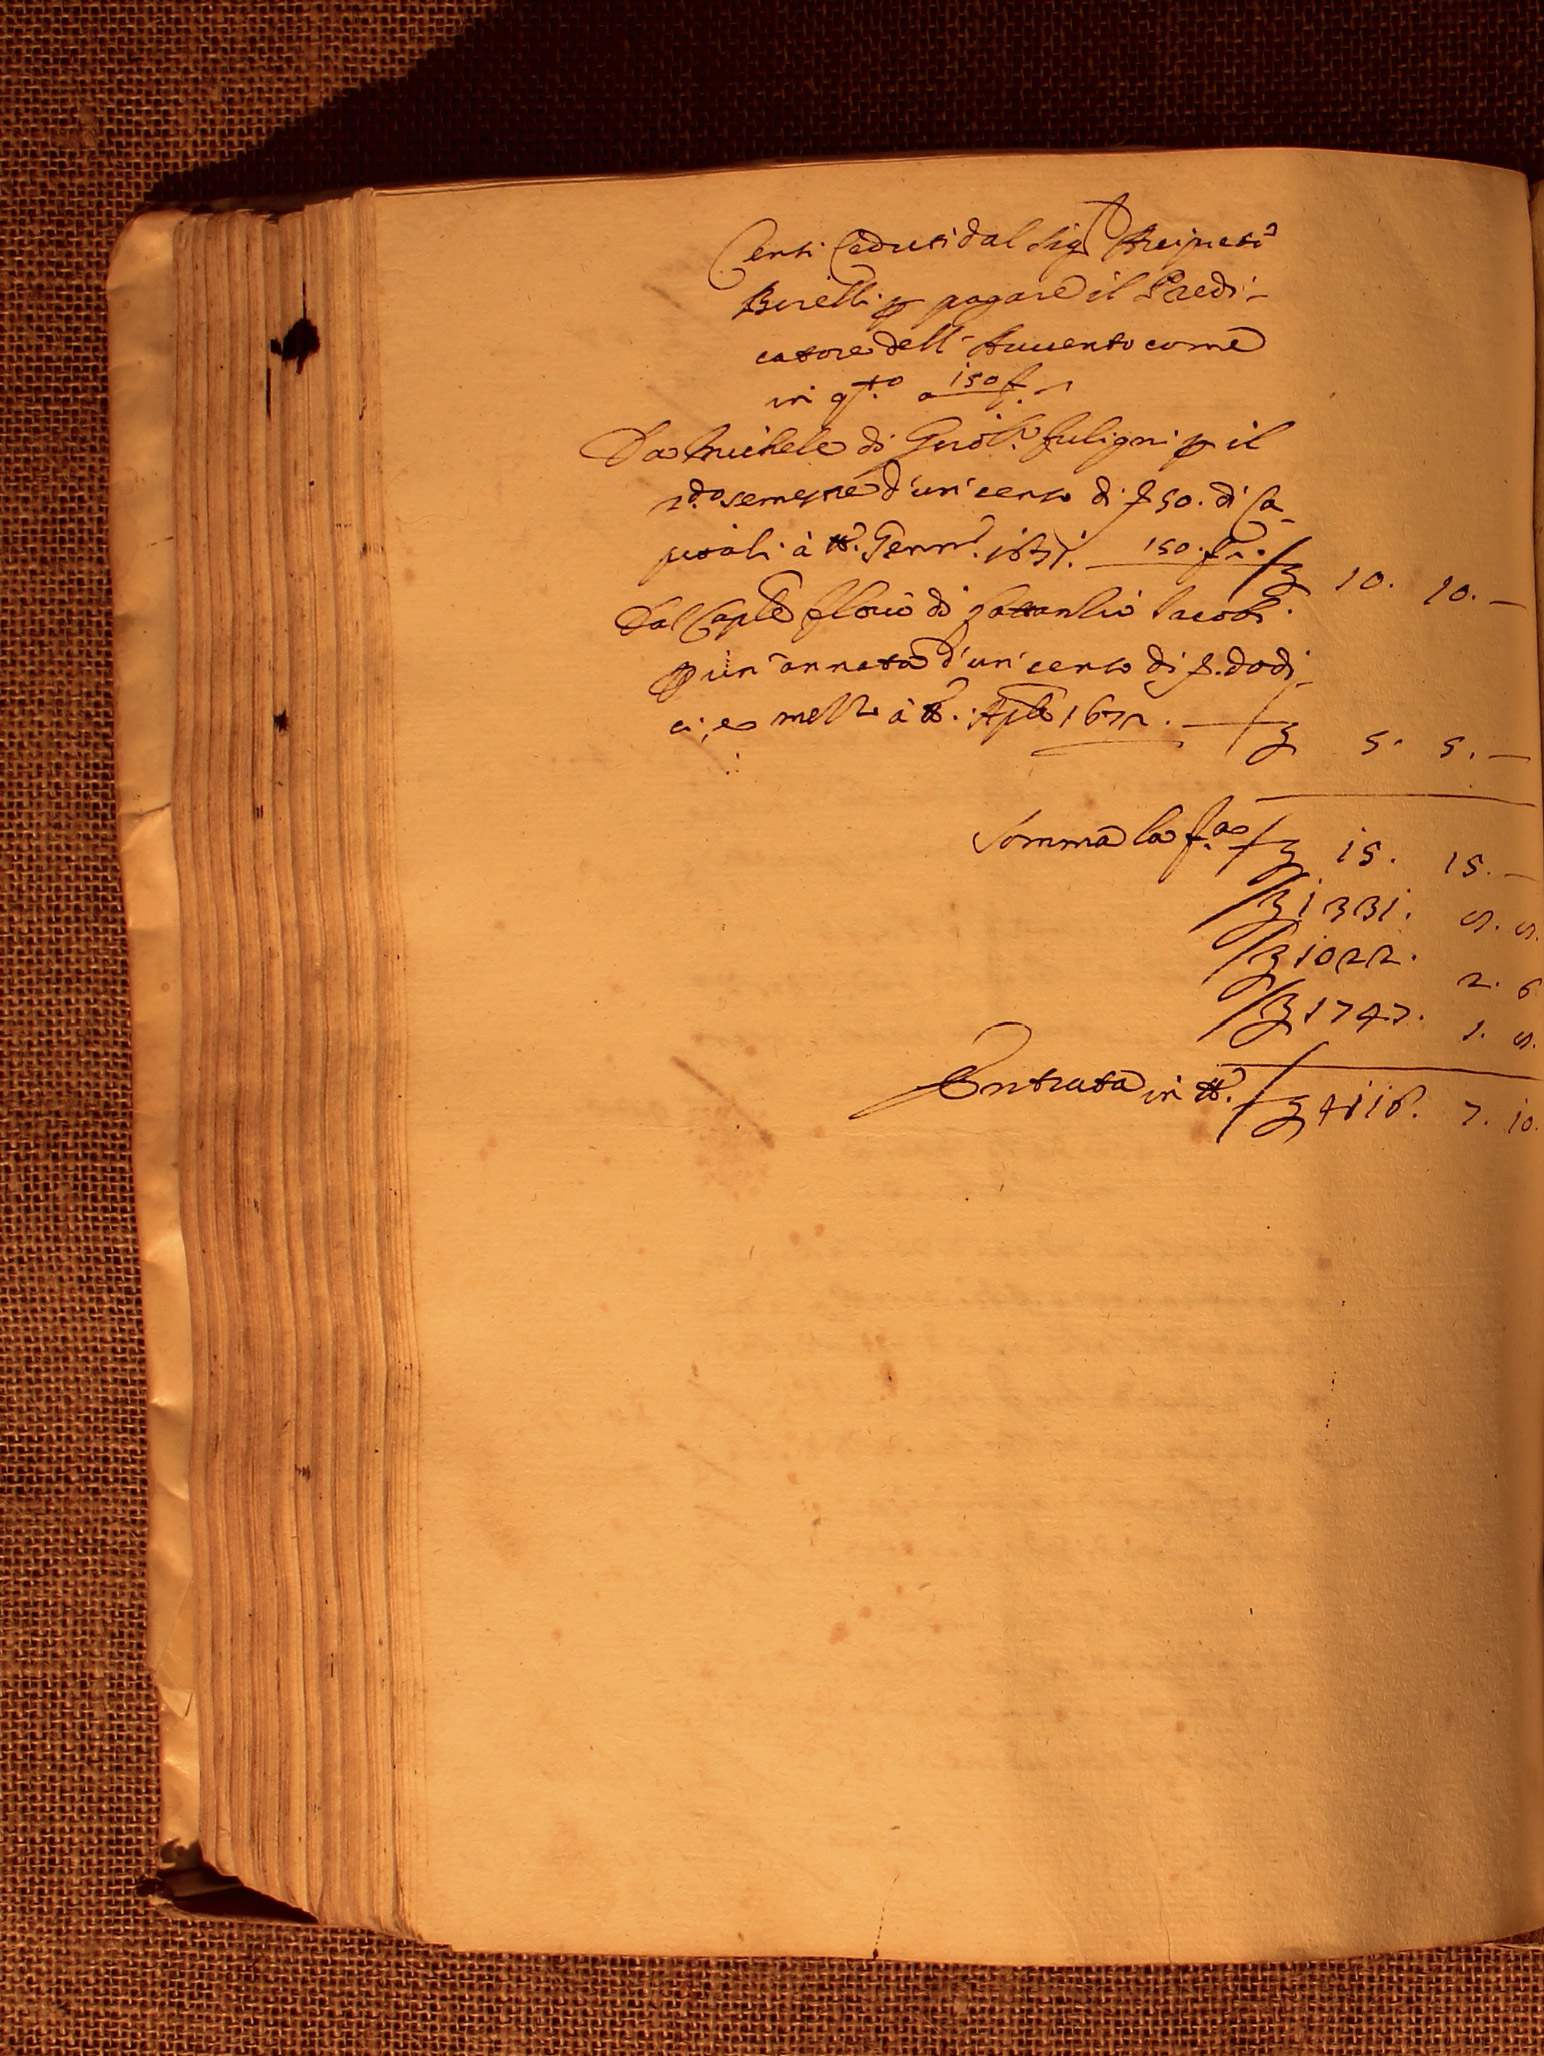 Censi Ceduti dal Sig.r
Birelli p pagare il Predi-
catore dell'Auuento come
in q.to a 150 f.
Da Michele di Girol.o fuligni p il
2.do semestre d'un censo di f 50. di Ca-
pitali à tt.o Genn.o 1671. 150. f.
10. 10. —
Dal Cap.le di Jacobi.
p un'annata d'un censo di f. dodi-
ci, e mezzo à tt.o Ap.le 1672.
5. 5. —
Somma la f.a 15. 15. —
1331. 5. 5.
1022. 2. 6
1747. 1. 5.
Entrata in tt.o 4116. 7. 10.